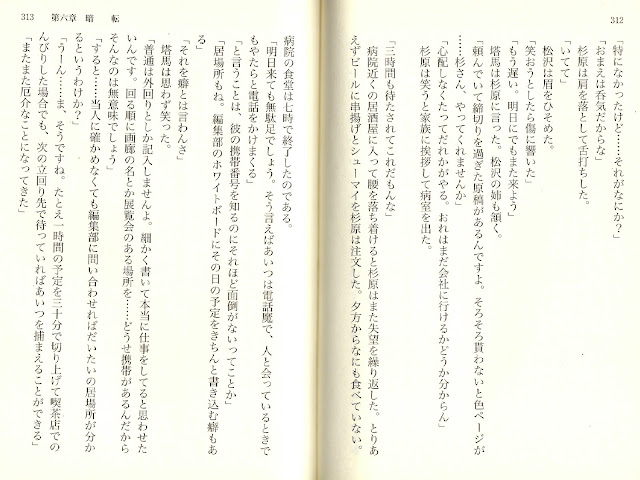 312
「特になかったけど……それがなにか？」
「おまえは呑気だからな」
杉原は肩を落として舌打ちした。
「いてて」
松沢は眉をひそめた。
「笑おうとしたら傷に響いた」
「もう遅い。明日にでもまた来よう」
塔馬は杉原に言った。松沢の姉も頷く。
「頼んでいて締切りを過ぎた原稿があるんですよ。そろそろ貰わないと色ページが
……杉さん、やってくれませんか」
「心配しなくたってだれかがやる。おれはまだ会社に行けるかどうか分からん」
杉原は笑うと家族に挨拶して病室を出た。
「三時間も待たされてこれだもんな」
病院近くの居酒屋に入って腰を落ち着けると杉原はまた失望を繰り返した。とりあ
えずビールに串揚げとシューマイを杉原は注文した。夕方からなにも食べていない。
313 第六章 暗 転
病院の食堂は七時で終了したのである。
「明日来ても無駄足でしょう。そう言えばあいつは電話魔で、人と会っているときで
もやたらと電話をかけまくる」
「と言うことは、彼の携帯番号を知るのにそれほど面倒がないってことか」
「居場所もね。編集部のホワイトボードにその日の予定をきちんと書き込む癖もあ
る」
「それを癖とは言わんさ」
塔馬は思わず笑った。
「普通は外回りとしか記入しませんよ。細かく書いて本当に仕事をしてると思わせた
いんです。回る順に画廊の名とか展覧会のある場所を……どうせ携帯があるんだから
そんなのは無意味でしょう」
「すると……当人に確かめなくても編集部に問い合わせればだいたいの居場所が分か
るというわけか？」
「うーん……ま、そうですね。たとえ一時間の予定を三十分で切り上げて喫茶店での
んびりした場合でも、次の立回り先で待っていればあいつを捕まえることができる」
「またまた厄介なことになってきた」